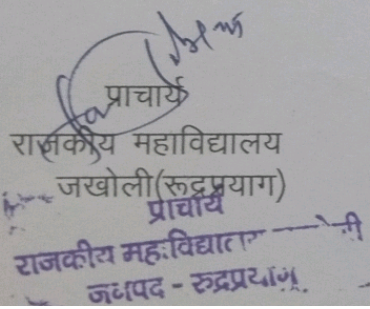 प्राचार्य
राजकीय महाविद्यालय
जखोली(रूद्रप्रयाग)
प्राचार्य
राजकीय महाविद्यालय
जनपद - रुद्रप्रयाग